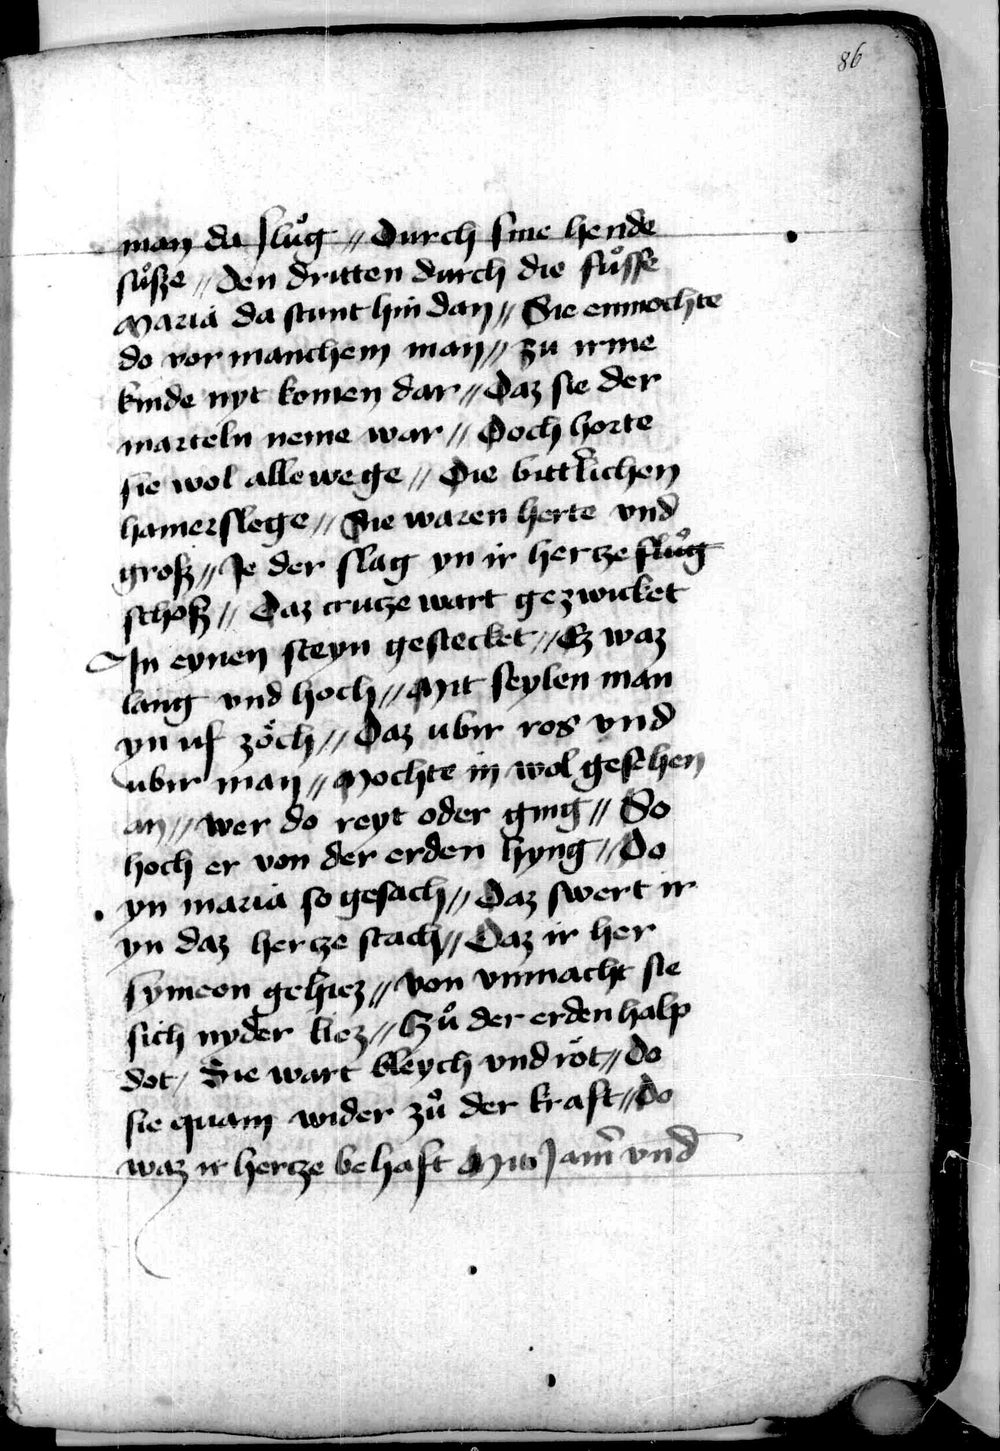 86
man da sluͦg // Durch sine hende
suͦsze // Den dritten durch die fuͦsse
Maria da stunt hin dan // Sie enmochte
do vor manchem man // zu irme
kinde nyt komen dar // Daz sie der
marteln neme war // Doch horte
sie wol alle wege // Die bittˀlichen
hamerslege // Sie waren herte vnd
grosz // Je der slag yn ir hertze fluͦg
schosz // Daz crutze wart gezwicket
In eynen steyn gestecket // Ez waz
lang vnd hoch // Mit seylen man
yn uf zoͤch // Daz ubir ros vnd
ubir man // Mochte in wol gesehen
an // wer do reyt oder ging // So
hoch er von der erden hyng // Do
yn maria so gesach // Daz swert ir
yn daz hertze stach // Daz ir her
symeon gehiez // von vnmacht sie
sich nyder liez // Zuͦ der erden halp
dot / Sie wart bleych vnd rot // Do
sie quam wider zuͦ der kraft // Do
waz ir hertze behaft Mit Jamˀ vnd